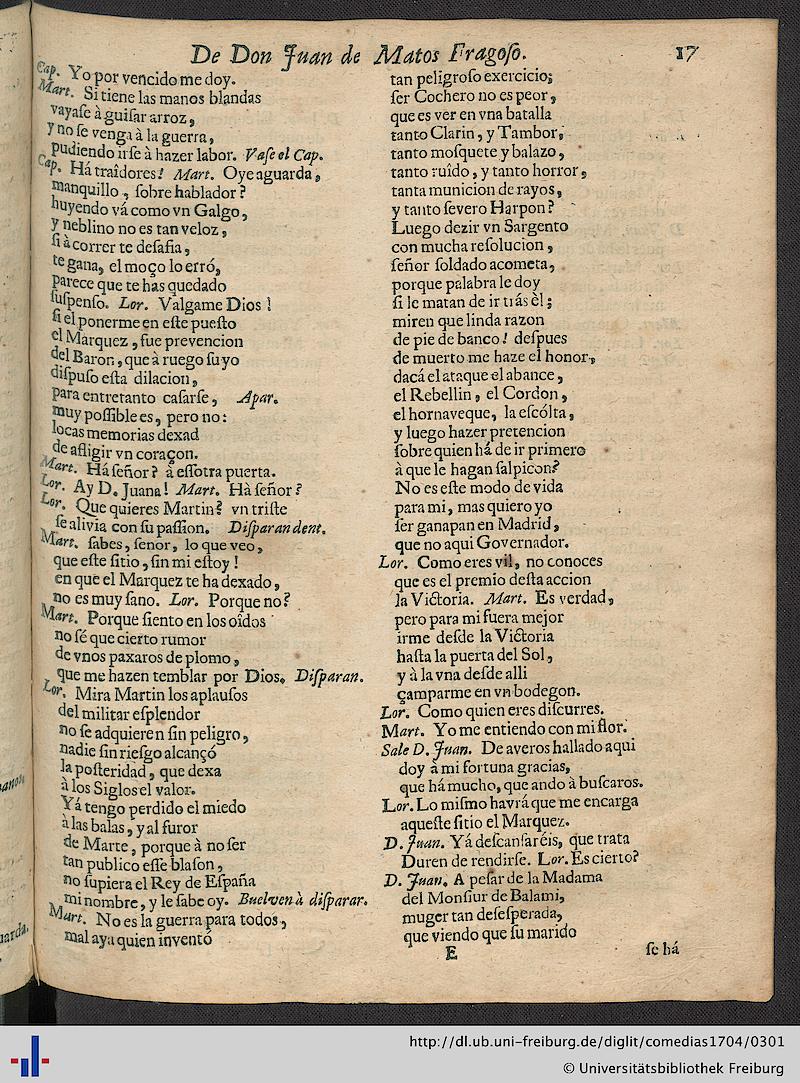 De Don Juan de Matos Fragoſo. 17
Cap. Yo por vencido me doy.
Mart. Si tiene las manos blandas
vayaſe à guiſar arroz,
y no ſe venga à la guerra,
pudiendo irſe à hazer labor. Vaſe el Cap.
Cap. Há traîdores! Mart. Oye aguarda,
manquillo, ſobre hablador?
huyendo vá como vn Galgo,
y neblino no es tan veloz,
ſi à correr te deſafia,
te gana, el moço lo erró,
parece que te has quedado
ſuſpenſo. Lor. Valgame Dios!
ſi el ponerme en eſte pueſto
el Marquez, fue prevencion
del Baron, que à ruego ſuyo
diſpuſo eſta dilacion,
para entretanto caſarſe, Apar.
muy poſſible es, pero no:
locas memorias dexad
de afligir vn coraçon.
Mart. Há ſeñor? à eſſotra puerta.
Lor. Ay D. Juana! Mart. Hà ſeñor?
Lor. Que quieres Martin? vn triſte
ſe alivia con ſu paſſion. Diſparan dent.
Mart. ſabes, ſenor, lo que veo,
que eſte ſitio, ſin mi eſtoy!
en que el Marquez te ha dexado,
no es muy ſano. Lor. Porque no?
Mart. Porque ſiento en los oîdos
no ſé que cierto rumor
de vnos paxaros de plomo,
que me hazen temblar por Dios. Diſparan.
Lor. Mira Martin los aplauſos
del militar eſplendor
no ſe adquieren ſin peligro,
nadie ſin rieſgo alcançó
la poſteridad, que dexa
à los Siglos el valor.
Yá tengo perdido el miedo
à las balas, y al furor
de Marte, porque à no ſer
tan publico eſſe blaſon,
no ſupiera el Rey de Eſpaña
mi nombre, y le ſabe oy. Buelven à diſparar.
Mart. No es la guerra para todos,
mal aya quien inventó
tan peligroſo exercicio;
ſer Cochero no es peor,
que es ver en vna batalla
tanto Clarin, y Tambor,
tanto moſquete y balazo,
tanto ruîdo, y tanto horror,
tanta municion de rayos,
y tanto ſevero Harpon?
Luego dezir vn Sargento
con mucha reſolucion,
ſeñor ſoldado acometa,
porque palabra le doy
ſi le matan de ir trás èl;
miren que linda razon
de pie de banco! deſpues
de muerto me haze el honor,
dacá el ataque el abance,
el Rebellin, el Cordon,
el hornaveque, la eſcólta,
y luego hazer pretencion
ſobre quien há de ir primero
à que le hagan ſalpicon?
No es eſte modo de vida
para mi, mas quiero yo
ſer ganapan en Madrid,
que no aqui Governador.
Lor. Como eres vil, no conoces
que es el premio deſta accion
la Victoria. Mart. Es verdad,
pero para mi fuera mejor
irme deſde la Victoria
haſta la puerta del Sol,
y à la vna deſde alli
çamparme en vn bodegon.
Lor. Como quien eres diſcurres.
Mart. Yo me entiendo con mi flor.
Sale D. Juan. De averos hallado aqui
doy à mi fortuna gracias,
que há mucho, que ando à buſcaros.
Lor. Lo miſmo havrá que me encarga
aqueſte ſitio el Marquez.
D. Juan. Yá deſcanſaréis, que trata
Duren de rendirſe. Lor. Es cierto?
D. Juan. A peſar de la Madama
del Monſiur de Balami,
muger tan deſeſperada,
que viendo que ſu marido
E ſe há
http://dl.ub.uni-freiburg.de/diglit/comedias1704/0301
© Universitätsbibliothek Freiburg